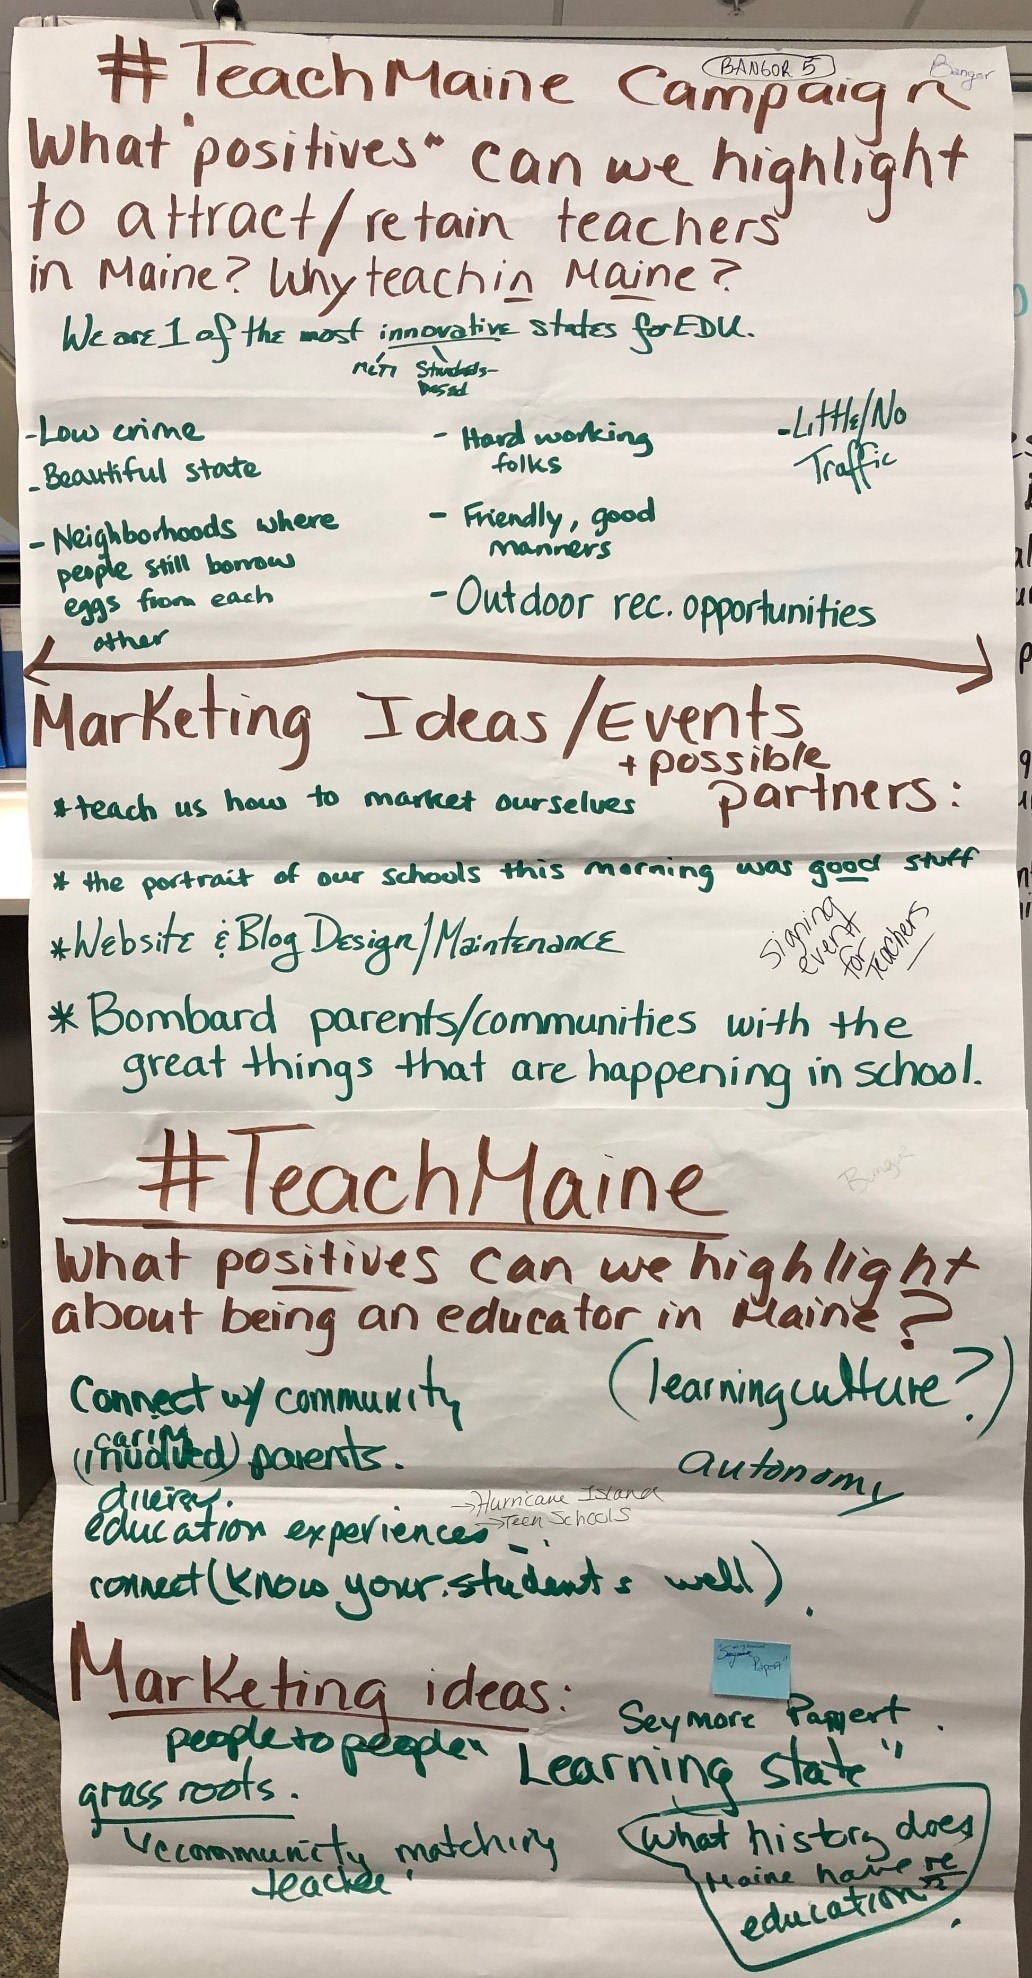 BANGOR 5
Bangor
#TeachMaine Campaign
What "positives" can we highlight
to attract/retain teachers
in Maine? Why teach in Maine?
We are 1 of the most innovative states for EDU.
MLTI Students-
Based
-Low crime
- Beautiful state
- Neighborhoods where
people still borrow
eggs from each
other
- Hard working
folks
- Friendly, good
manners
- Outdoor rec. opportunities
-Little/No
Traffic
Marketing Ideas/Events
+ possible
partners:
* teach us how to market ourselves
* the portrait of our schools this morning was good stuff
* Website & Blog Design/Maintenance
Signing
event
for
Teachers
* Bombard parents/communities with the
great things that are happening in school.
#TeachMaine
Bangor
What positives can we highlight
about being an educator in Maine?
Connect w/ community
caring
(involved) parents.
(learning culture?)
autonomy
education experiences
→Hurricane Island
→Teen Schools
connect (know your students well).
Marketing ideas:
people to people
grass roots.
community matching
teacher
Papert"
Seymore Pappert.
Learning state"
What history does
Maine have re
education